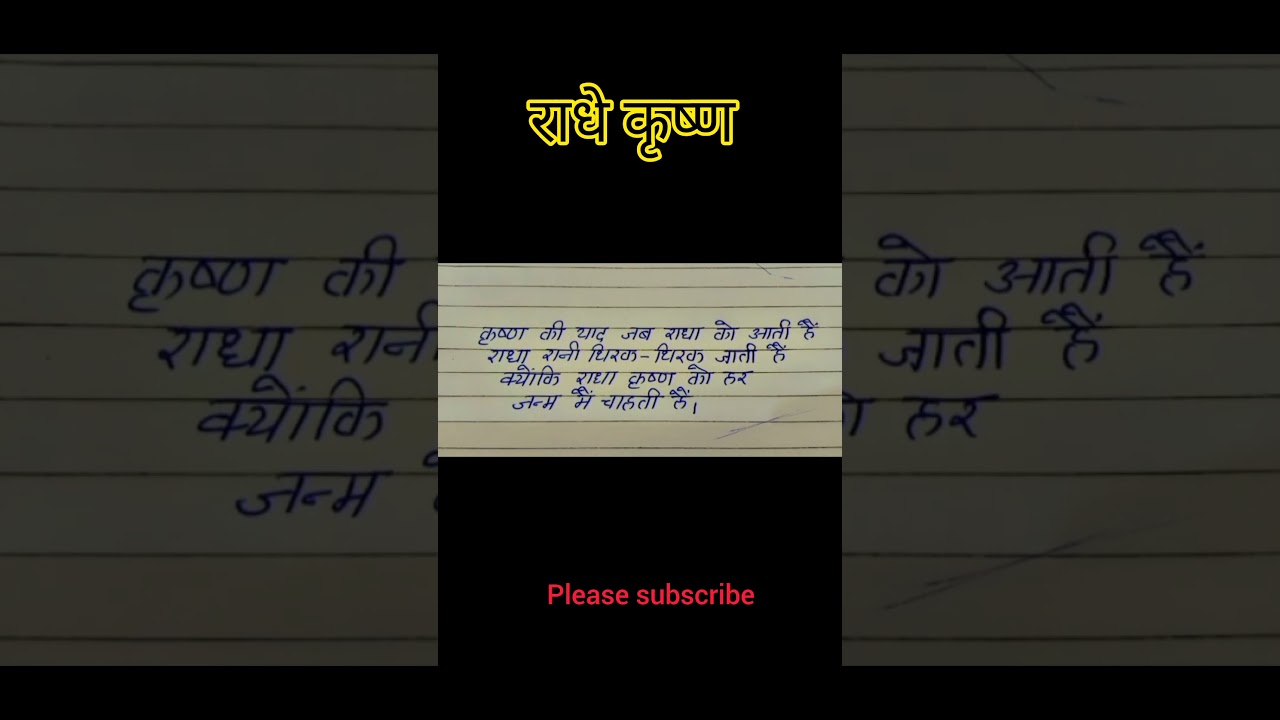 राधे कृष्ण
कृष्ण की याद जब राधा को आती हैं
राधा रानी थिरक-थिरक जाती हैं
क्योंकि राधा कृष्ण को हर
जन्म में चाहती हैं।
Please subscribe